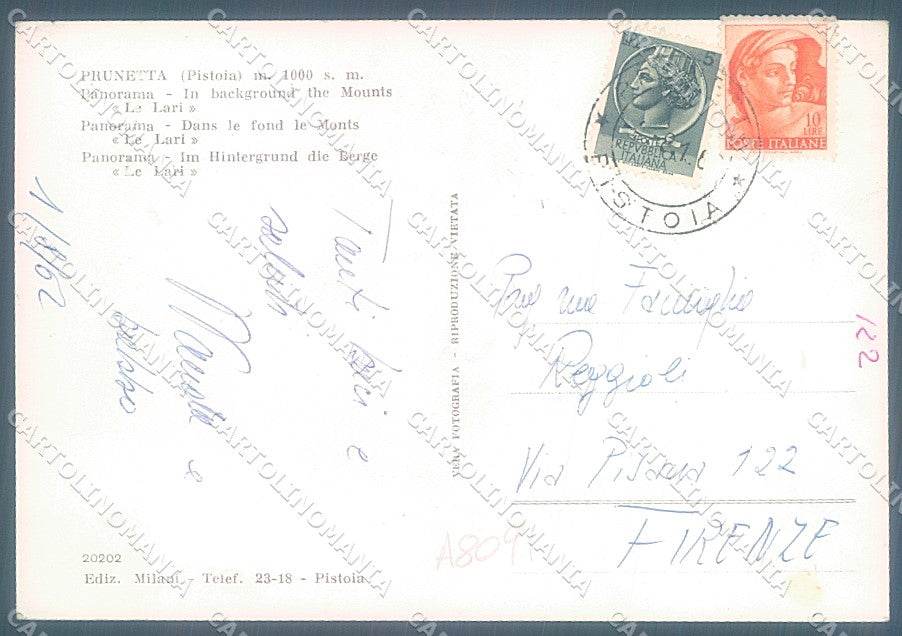 PRUNETTA (Pistoia) m. 1000 s. m.
Panorama - In background the Mounts
« Le Lari »
Panorama - Dans le fond le Monts
« Le Lari »
Panorama - Im Hintergrund die Berge
« Le Lari »
1/8/62
Tanti baci e
saluti
e
VERA FOTOGRAFIA - RIPRODUZIONE VIETATA
5
POSTE
REPVBBLICA
ITALIANA
10
LIRE
POSTE ITALIANE
PISTOIA
Famiglia
Reggioli
Via Pisana 122
FIRENZE
122
A809
20202
Ediz. Milani - Telef. 23-18 - Pistoia
CARTOLINOMANIA